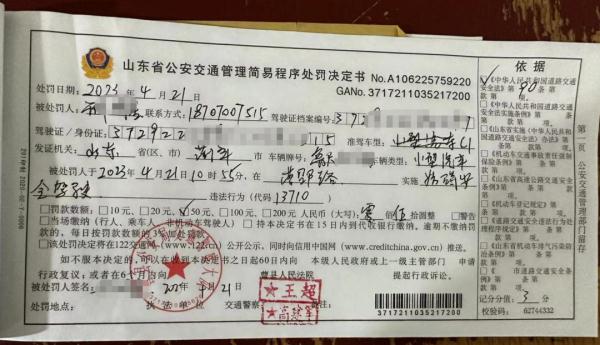 山东省公安交通管理简易程序处罚决定书 No.A106225759220
GANo. 3717211035217200
处罚日期: 2023年4月21日
被处罚人: 联系方式: 18707007515 驾驶证档案编号: 372
驾驶证/身份证: 372922 115 准驾车型: C1
发证机关: 山东 省(区、市) 市 车辆牌号: 鲁 车辆类型: 小型汽车
被处罚人于2023年4月21日10时55分,在 实施
全驾驶 违法行为(代码: 13710)
□罚款数额: □10元 □20元 □50元 □100元 □200元 人民币(大写): 零佰 拾圆整 □警告
□当场缴纳(行人、乘车人、非机动车驾驶人) □持本决定书在15日内到代收银行缴纳。逾期不缴纳罚
款的,每日按罚款数额的3%加处罚款
□该处罚决定将在122交通网(www.122.cn)公开公示,同时向信用中国网(www.creditchina.gov.cn)推送。
如不服本决定的,可以在收到本决定书之日起60日内向 本级人民政府或上一级主管部门 申请
行政复议;或者在6个月内向 曹县人民法院 提起行政诉讼。
被处罚人签名: 2023年4月21日
处罚地点: 执法单位 交通警察: 备注:
王超
3717211035217200
依据
√《中华人民共和国道路交通
安全法》第90条
款第 项。
□《中华人民共和国道路交通
安全法实施条例》第
条 款第 项。
□《山东省实施〈中华人民共
和国道路交通安全法〉办法》
第 条 款第 项。
□《机动车交通事故责任强制
保险条例》第 条
款第 项。
□《山东省高速公路交通安全
条例》第 条
款第 项。
□《机动车登记规定》第
条 款第 项。
□《道路交通安全违法行为处
理程序规定》第 条
款第 项。
□《山东省机动车排气污染防
治条例》第 条
款第 项。
□《 市道路交通安全
条例》第 条
款第 项。
记分分值: 3 分
校验码: 62744332
第一页 公安交通管理部门留存